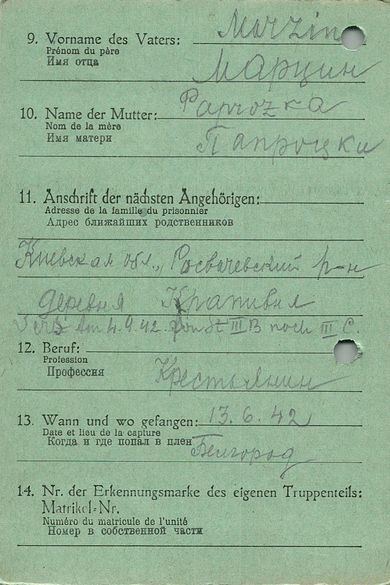 9. Vorname des Vaters: Marzin
Prénom du père
Имя отца
Марцин
10. Name der Mutter: Paprozka
Nom de la mère
Имя матери
Папроцки
11. Anschrift der nächsten Angehörigen:
Adresse de la famille du prisonnier
Адрес ближайших родственников
Киевская обл., Розважевский р-н
деревня Крапивня
Vers. am 4.9.42. von St III B nach III C.
12. Beruf:
Profession
Профессия
Крестьянин
13. Wann und wo gefangen: 13.6.42
Date et lieu de la capture
Когда и где попал в плен
Белгород
14. Nr. der Erkennungsmarke des eigenen Truppenteils:
Matrikel-Nr.
Numéro du matricule de l'unité
Номер в собственной части